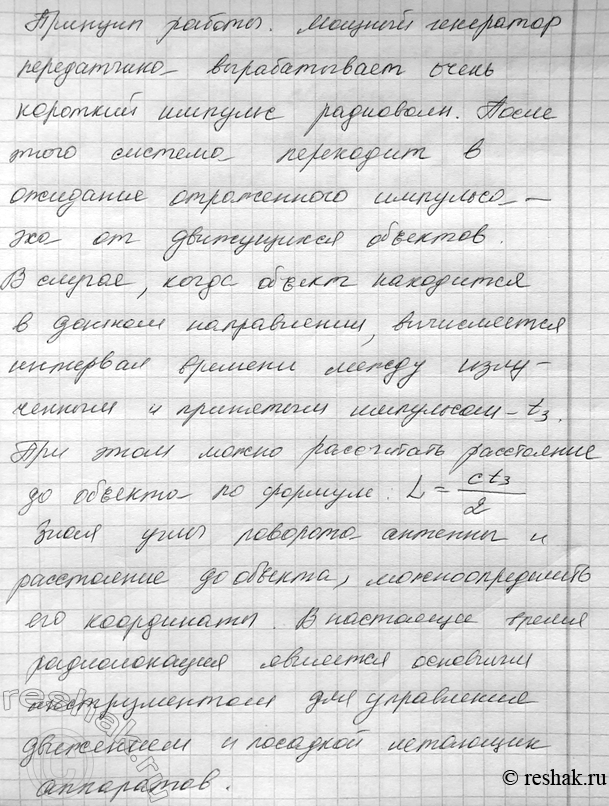 Принцип работы. Мощный генератор
передатчика вырабатывает очень
короткий импульс радиоволн. После
этого система переходит в
ожидание отраженного импульса –
эха от движущихся объектов.
В случае, когда объект находится
в данном направлении, вычисляется
интервал времени между излу-
ченным и принятым импульсом – t₃.
При этом можно рассчитать расстояние
до объекта по формуле: L = ct₃/2
Зная углы поворота антенны и
расстояние до объекта, можноопределить
его координаты. В настоящее время
радиолокация является основным
инструментом для управления
движением и посадкой летающих
аппаратов.
reshak.ru
© reshak.ru